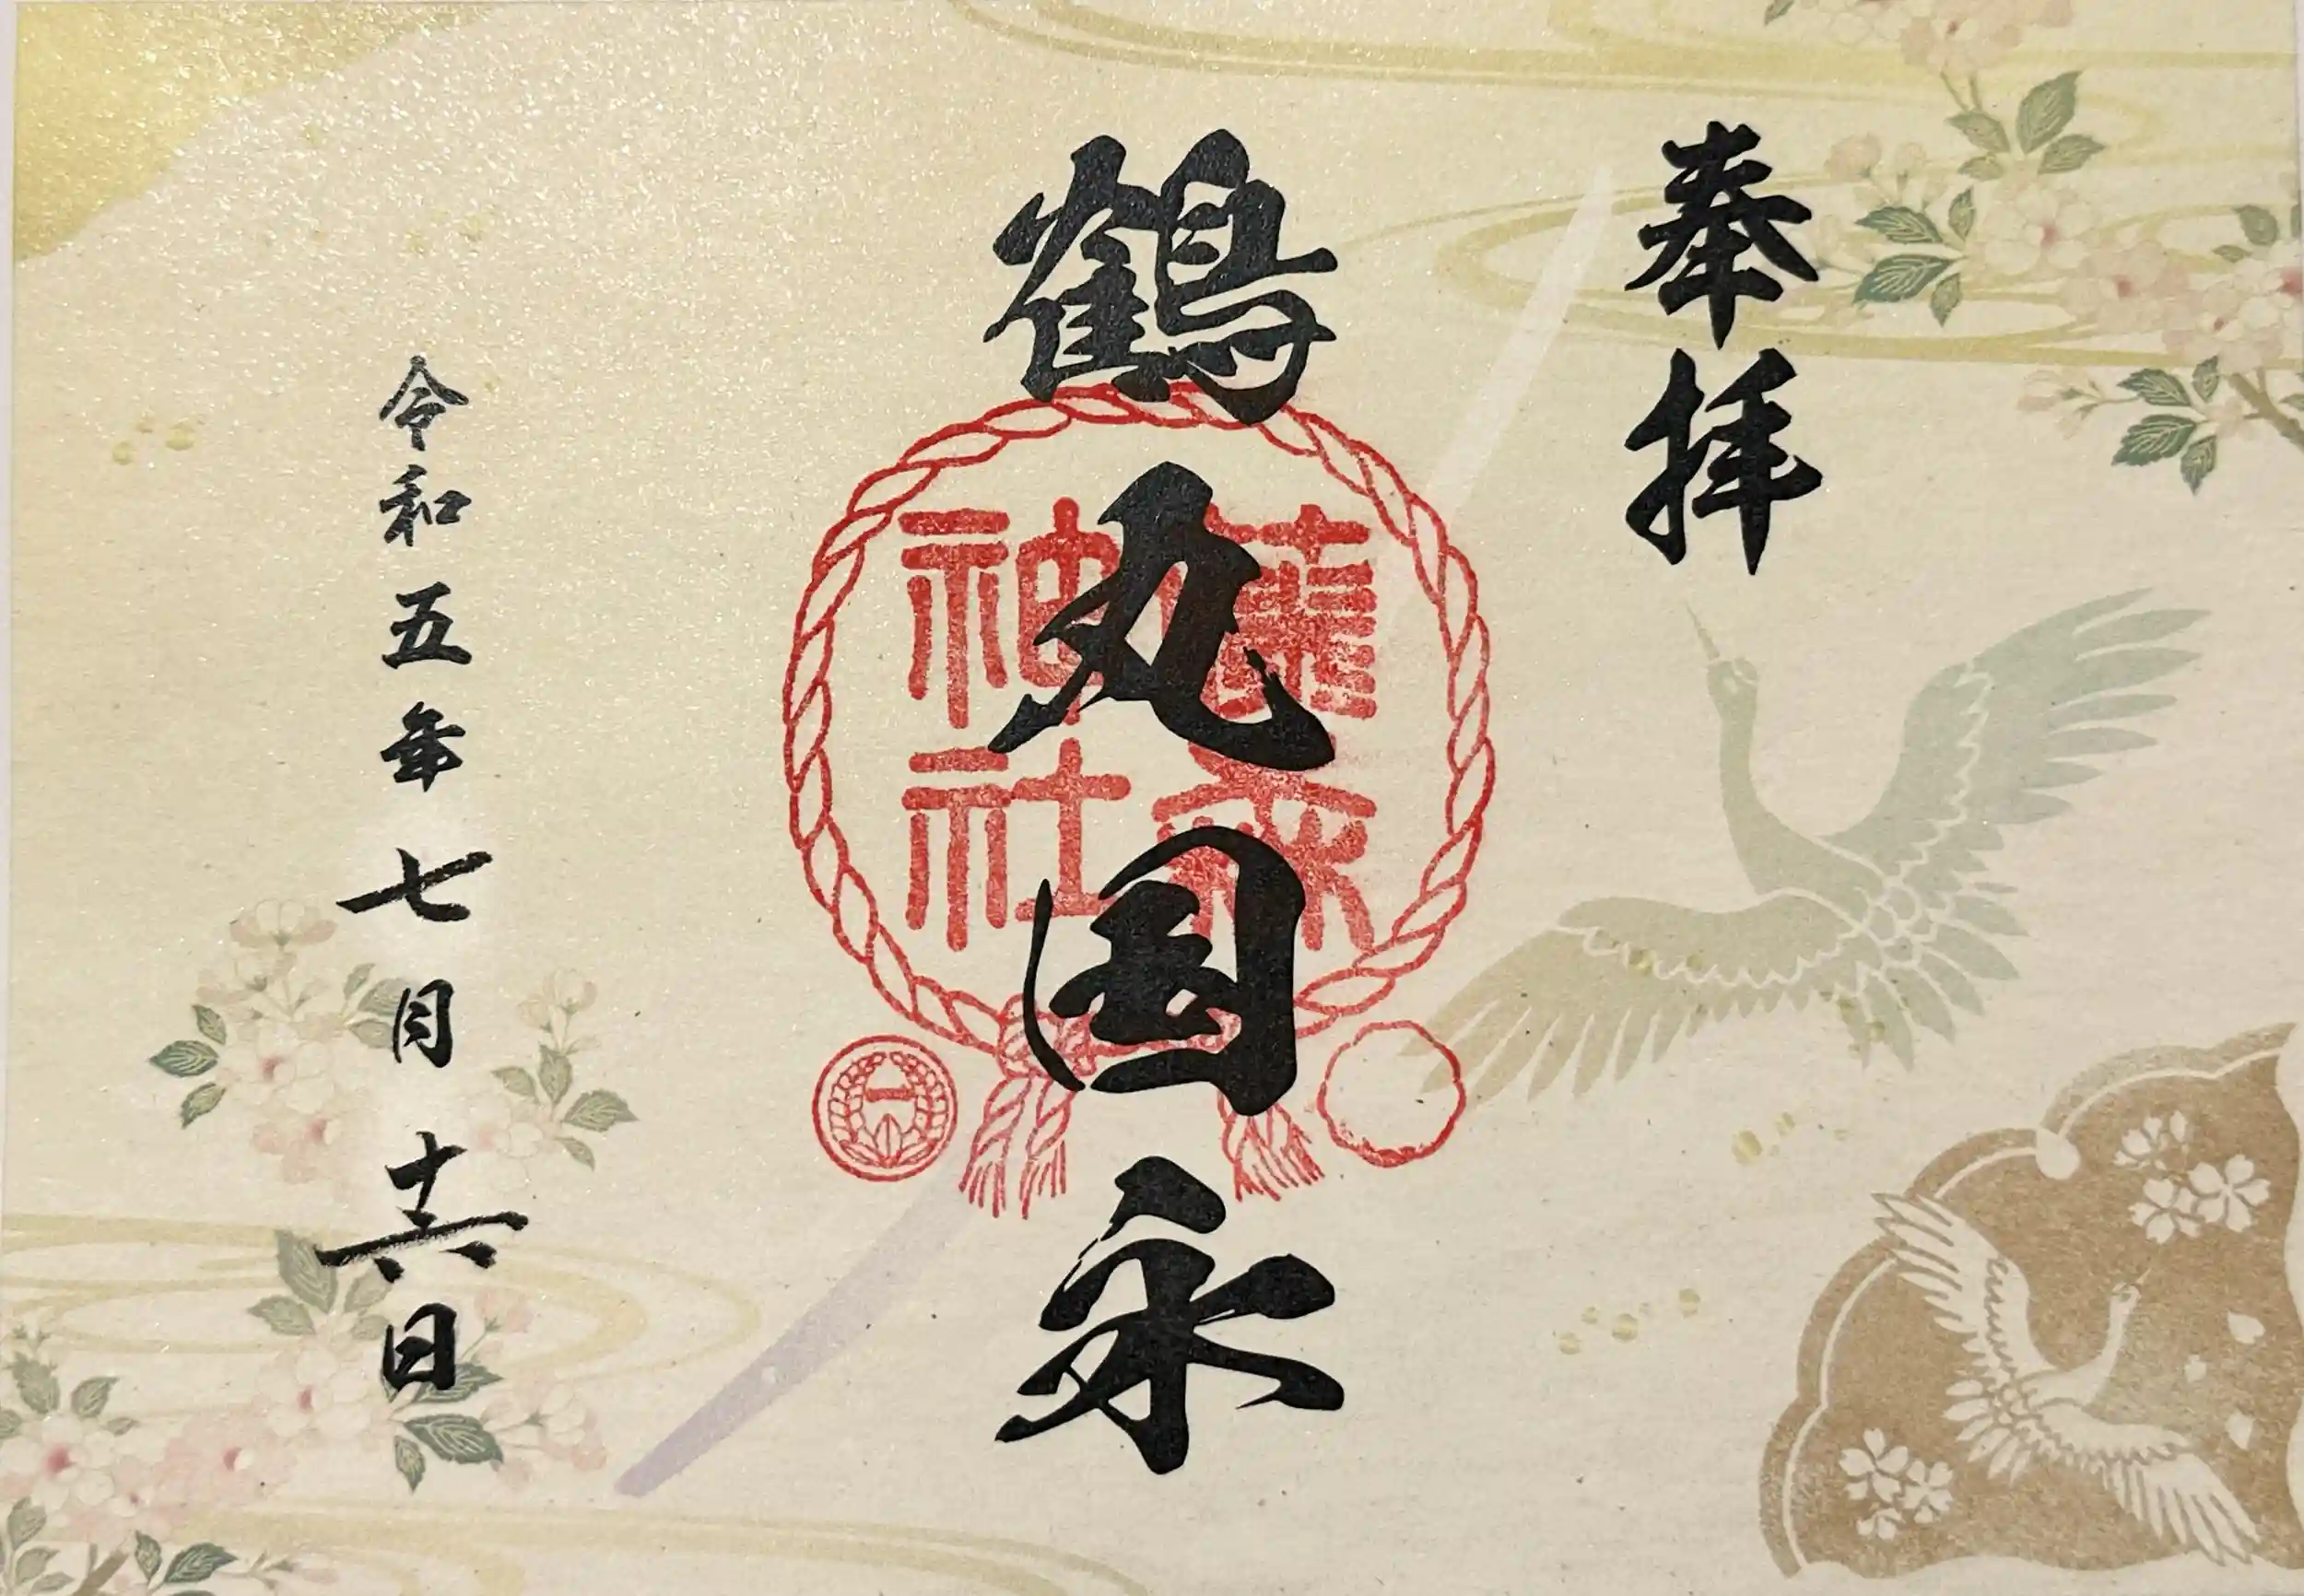 奉拝
鶴丸国永
藤森神社
一
令和五年七月十六日